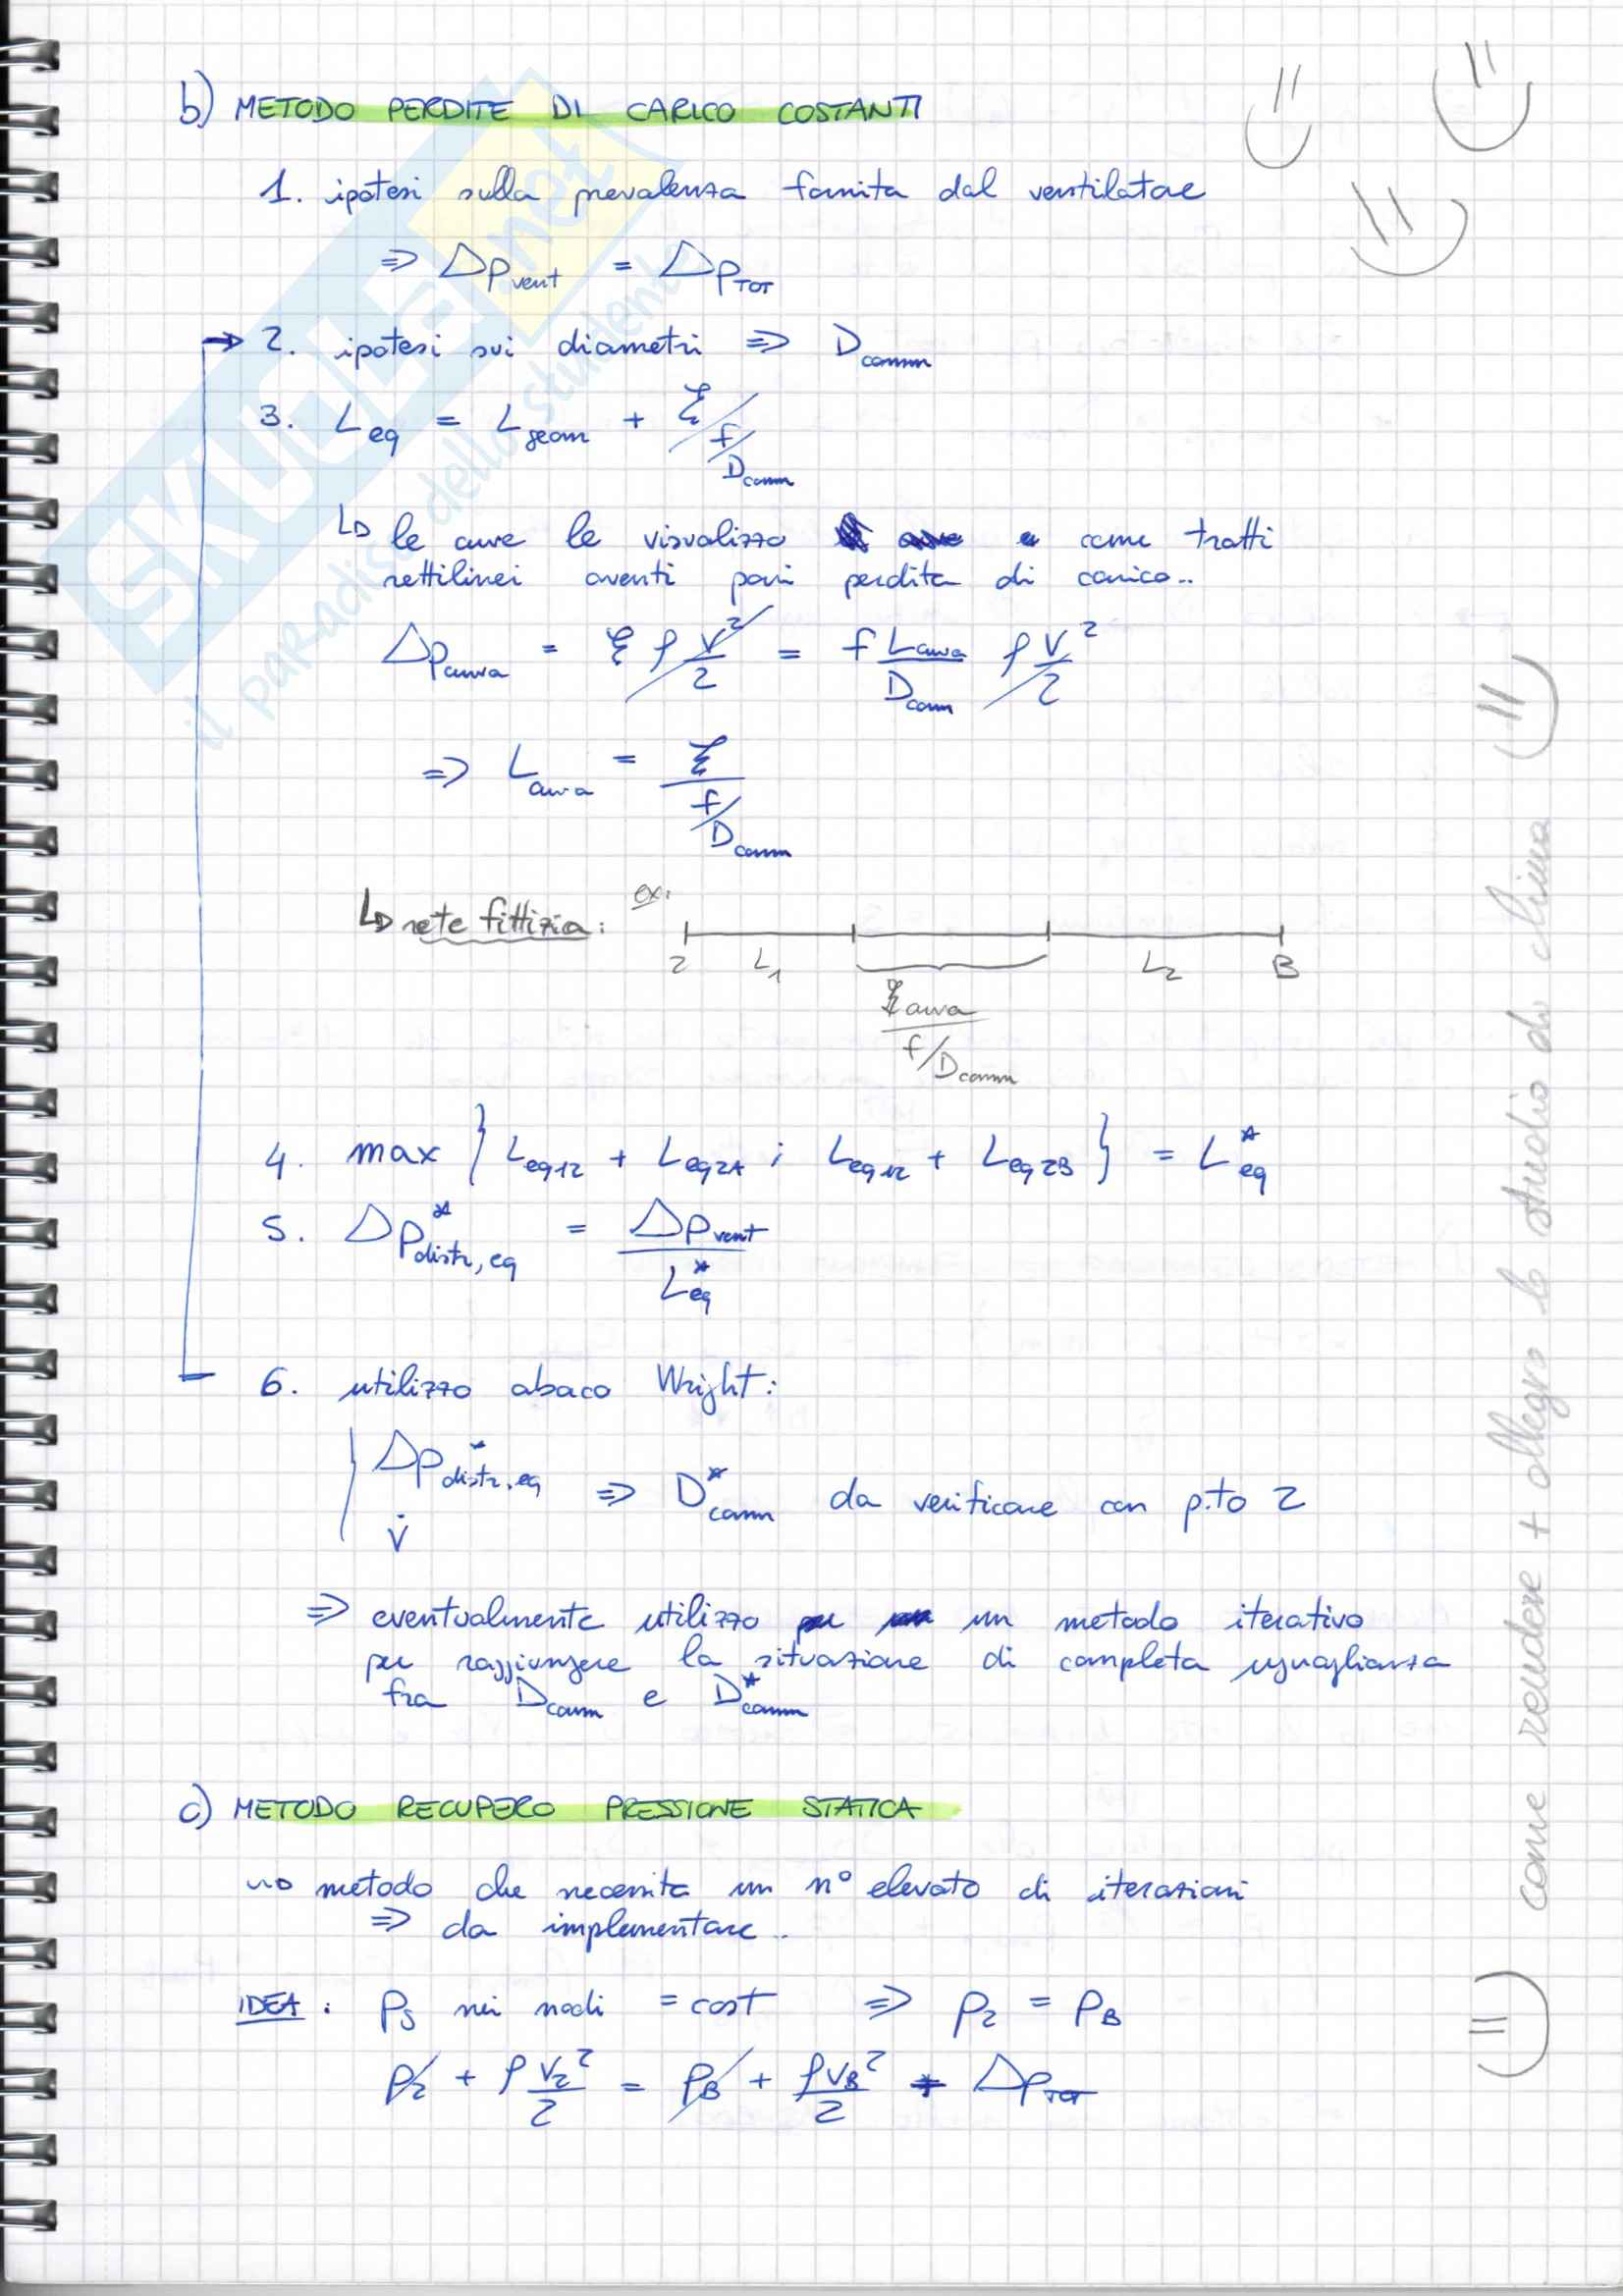 b) METODO PERDITE DI CARICO COSTANTI
1. ipotesi sulla prevalenza fornita dal ventilatore
⇒ Δp_vent = Δp_TOT
→ 2. ipotesi sui diametri ⇒ D_comm
3. L_eq = L_geom + ξ/(f/D_comm)
↳ le curve le visualizzo come tratti
rettilinei aventi pari perdita di carico..
Δp_curva = ξ ρ v²/2 = f L_curva/D_comm ρ v²/2
⇒ L_curva = ξ/(f/D_comm)
↳ rete fittizia: ex:
2 L₁ L₂ B
ξ_curva/(f/D_comm)
4. max { L_eq12 + L_eq2A ; L_eq12 + L_eq2B } = L*_eq
5. Δp*_distr,eq = Δp_vent/L*_eq
6. utilizzo abaco Wright:
{ Δp*_distr,eq ⇒ D*_comm da verificare con p.to 2
V̇
⇒ eventualmente utilizzo un metodo iterativo
per raggiungere la situazione di completa uguaglianza
fra D_comm e D*_comm
c) METODO RECUPERO PRESSIONE STATICA
⇝ metodo che necessita un n° elevato di iterazioni
⇒ da implementare..
IDEA: p_s nei nodi = cost ⇒ p₂ = p_B
p₂ + ρ v₂²/2 = p_B + ρ v_B²/2 + Δp_TOT
come rendere + allegro lo studio di clima
SKUOLA.net
il paradiso dello studente